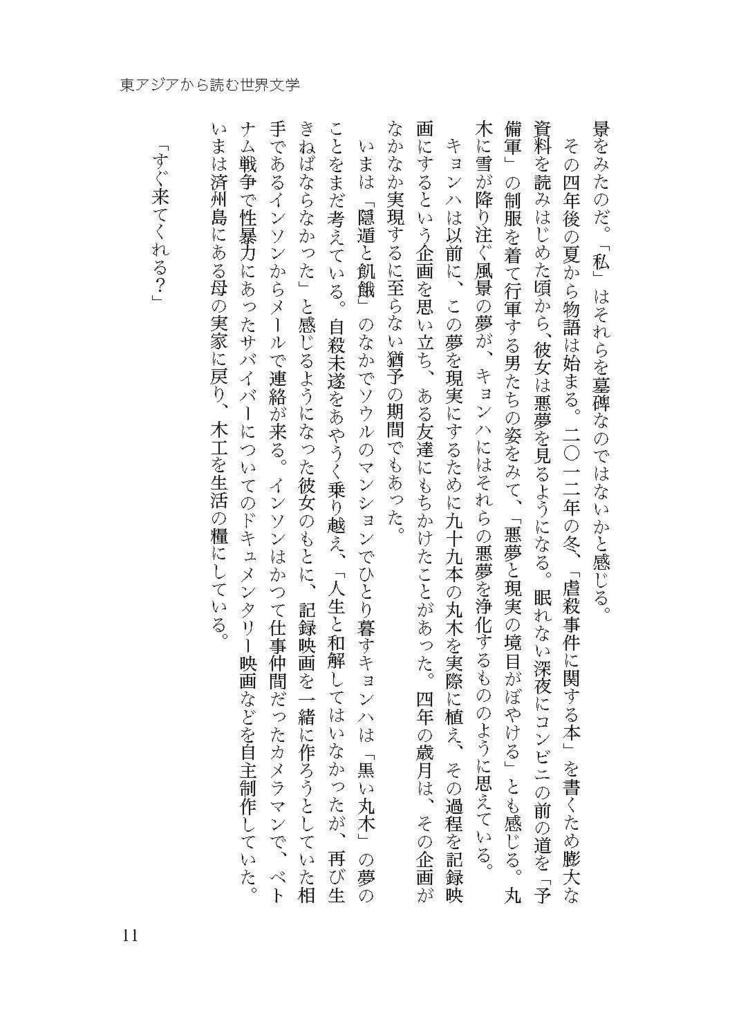 東アジアから読む世界文学
景をみたのだ。「私」はそれらを墓碑なのではないかと感じる。
その四年後の夏から物語は始まる。二〇一二年の冬、「虐殺事件に関する本」を書くため膨大な
資料を読みはじめた頃から、彼女は悪夢を見るようになる。眠れない深夜にコンビニの前の道を「予
備軍」の制服を着て行軍する男たちの姿をみて、「悪夢と現実の境目がぼやける」とも感じる。丸
木に雪が降り注ぐ風景の夢が、キョンハにはそれらの悪夢を浄化するもののように思えている。
キョンハは以前に、この夢を現実にするために九十九本の丸木を実際に植え、その過程を記録映
画にするという企画を思い立ち、ある友達にもちかけたことがあった。四年の歳月は、その企画が
なかなか実現するに至らない猶予の期間でもあった。
いまは「隠遁と飢餓」のなかでソウルのマンションでひとり暮すキョンハは「黒い丸木」の夢の
ことをまだ考えている。自殺未遂をあやうく乗り越え、「人生と和解してはいなかったが、再び生
きねばならなかった」と感じるようになった彼女のもとに、記録映画を一緒に作ろうとしていた相
手であるインソンからメールで連絡が来る。インソンはかつて仕事仲間だったカメラマンで、ベト
ナム戦争で性暴力にあったサバイバーについてのドキュメンタリー映画などを自主制作していた。
いまは済州島にある母の実家に戻り、木工を生活の糧にしている。
「すぐ来てくれる？」
11